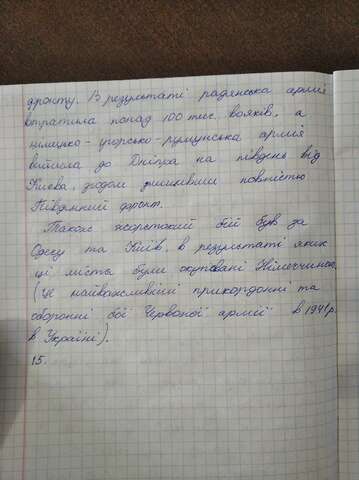 фронту. В результаті радянська армія
втратила понад 100 тис. вояків, а
німецько-угорсько-румунська армія
вийшла до Дніпра на південь від
Києва, згодом знищивши повністю
Південний фронт.
Також жорстокий бій був за
Одесу та Київ, в результаті яких
ці міста були окуповані Німеччиною.
(це найважливіші прикордонні та
оборонні бої Червоної армії в 1941р.
в Україні).
15.